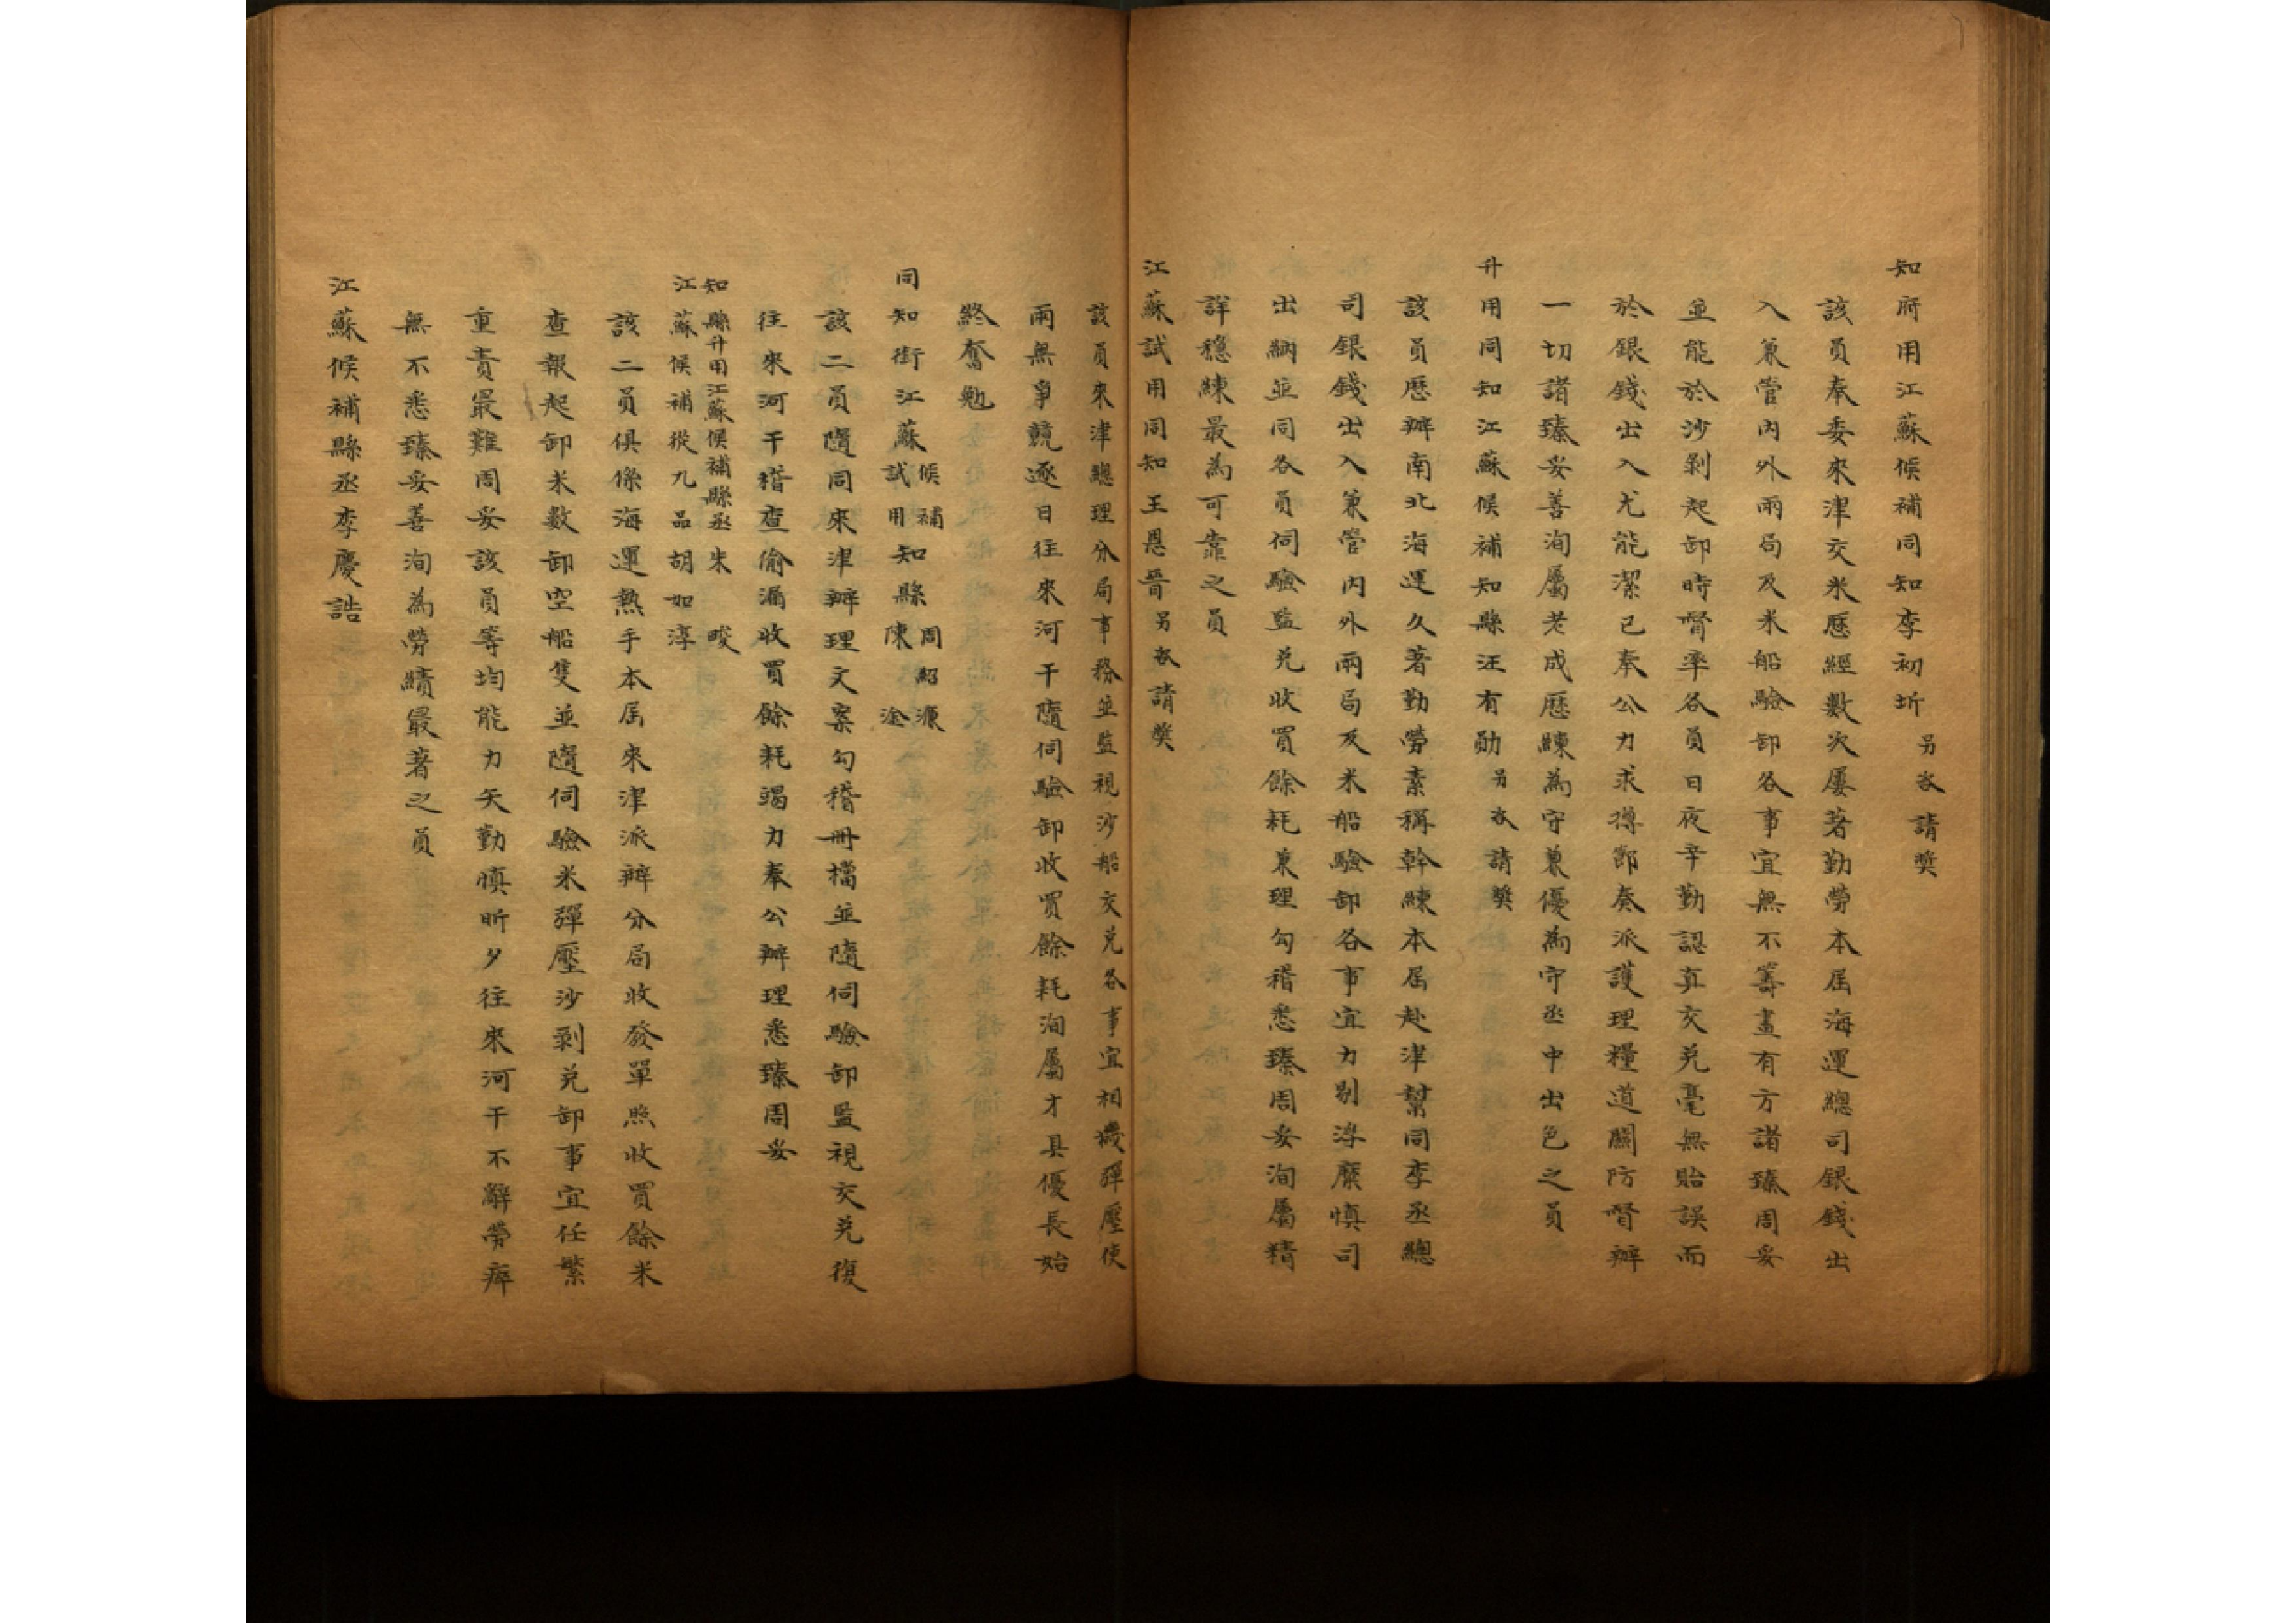 知府用江蘇候補同知李初圻另咨請獎
該員奉委來津交米歷經數次屢著勤勞本屆海運總司銀錢出
入兼管內外兩局及米船驗卸各事宜無不籌畫有方諸臻周妥
並能於沙剝起卸時督率各員日夜辛勤認真交兌毫無貽誤而
於銀錢出入尤能潔已奉公力求撙節奏派護理糧道關防督辦
一切諸臻妥善洵屬老成歷練為守兼優為守丞中出色之員
升用同知江蘇候補知縣汪有勛另咨請獎
該員歷辦南北海運久著勤勞素稱幹練本屆赴津幫同李丞總
司銀錢出入兼管內外兩局及米船驗卸各事宜力剔浮糜慎司
出納並同各員伺驗監兌收買餘耗兼理勾稽悉臻周妥洵屬精
詳穩練最為可靠之員
江蘇試用同知王恩晉另咨請獎
該員來津總理分局事務並監視沙船交兌各事宜相機彈壓使
兩無爭競逐日往來河干隨伺驗卸收買餘耗洵屬才具優長始
終奮勉
同知銜江蘇候補試用知縣周紹濂陳淦
該二員隨同來津辦理文案勾稽冊檔並隨伺驗卸監視交兌復
往來河干稽查偷漏收買餘耗竭力奉公辦理悉臻周妥
知縣升用江蘇候補縣丞朱畯
江蘇候補從九品胡如淳
該二員俱係海運熟手本屆來津派辦分局收發單照收買餘米
查報起卸米數卸空船隻並隨伺驗米彈壓沙剝兌卸事宜任繁
重責最難周妥該員等均能力矢勤慎昕夕往來河干不辭勞瘁
無不悉臻妥善洵為勞績最著之員
江蘇候補縣丞李慶誥